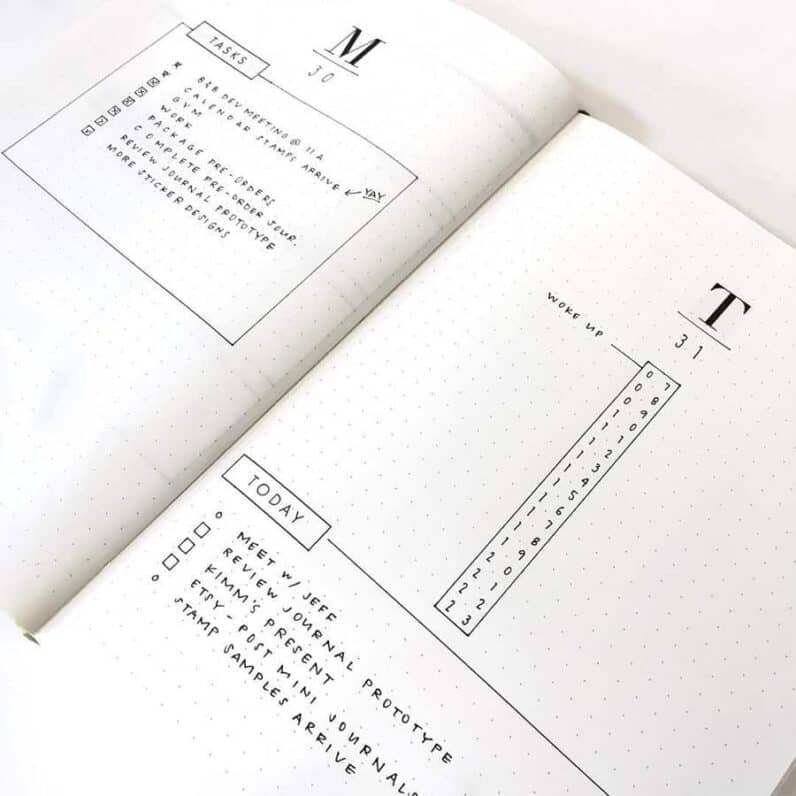 M
30
TASKS
DEV MEETING @ 11 A
CALENDAR STAMPS ARRIVE ✓ YAY
GYM
WORK
PACKAGE PRE-ORDERS
COMPLETE PRE-ORDER JOUR.
REVIEW JOURNAL PROTOTYPE
MORE STICKER DESIGNS
T
31
WOKE UP
07
08
09
10
11
12
13
14
15
16
17
18
19
20
21
22
23
TODAY
MEET W/ JEFF
REVIEW JOURNAL PROTOTYPE
KIMM'S PRESENT
ETSY - POST MINI JOURNALS
STAMP SAMPLES ARRIVE